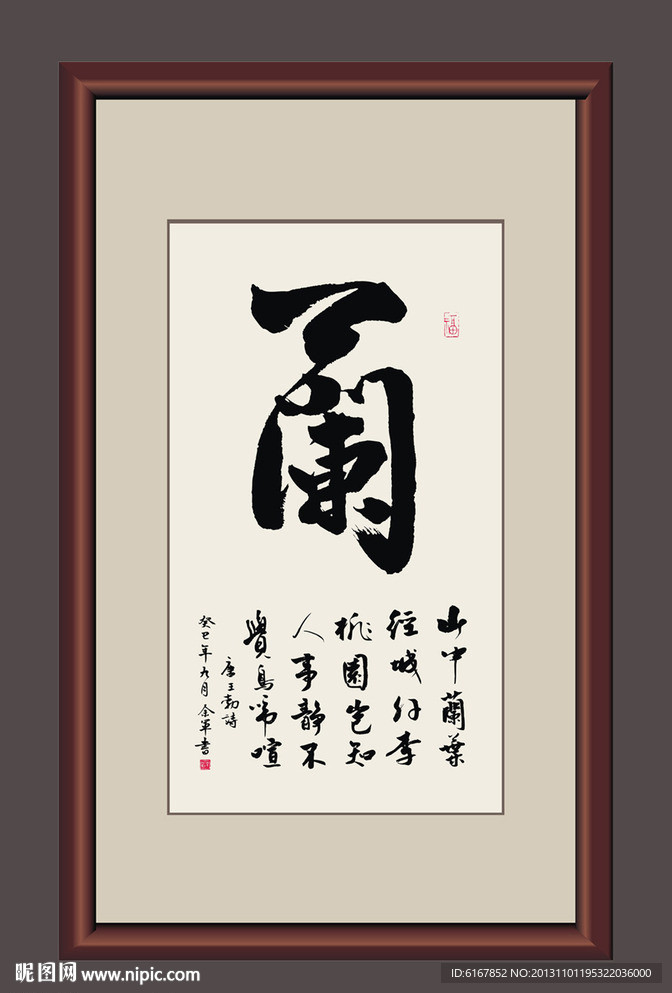 蘭
福
山中蘭葉
經城外李
桃園豈知
人事靜不
覺鳥啼喧
唐王勃詩
癸巳年九月余軍書
昵图网 www.nipic.com
ID:6167852 NO:20131101195322036000